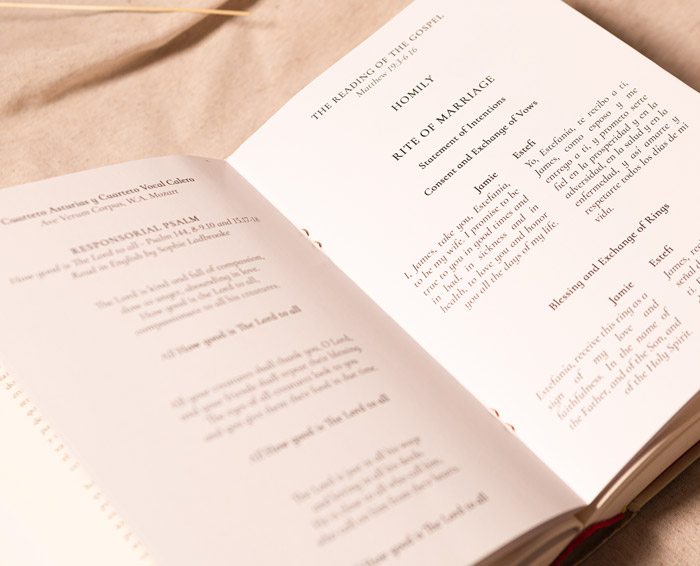 Cuarteto Asturias y Cuarteto Vocal Calero
Ave Verum Corpus, W.A. Mozart
RESPONSORIAL PSALM
How good is The Lord to all - Psalm 144, 8-9.10 and 15.17-18
Read in English by Sophie Ladbrooke
The Lord is kind and full of compassion,
slow to anger, abounding in love.
How good is the Lord to all,
compassionate to all his creatures.
All How good is The Lord to all
All your creatures shall thank you, O Lord,
and your friends shall repeat their blessing.
The eyes of all creatures look to you
and you give them their food in due time.
All How good is The Lord to all
The Lord is just in all his ways
and loving in all his deeds.
He is close to all who call him,
who call on him from their hearts.
How good is The Lord to all
THE READING OF THE GOSPEL
Matthew 19:3-6 16
HOMILY
RITE OF MARRIAGE
Statement of Intentions
Consent and Exchange of Vows
Jamie
I, James, take you, Estefanía,
to be my wife. I promise to be
true to you in good times and
in bad, in sickness and in
health, to love you and honor
you all the days of my life.
Estefi
Yo, Estefanía, te recibo a ti,
James, como esposo y me
entrego a ti, y prometo serte
fiel en la prosperidad y en la
adversidad, en la salud y en la
enfermedad, y así amarte y
respetarte todos los días de mi
vida.
Blessing and Exchange of Rings
Jamie
Estefanía, receive this ring as a
sign of my love and
faithfulness. In the name of
the Father, and of the Son, and
of the Holy Spirit.
Estefi
James, re
señal d
ti.